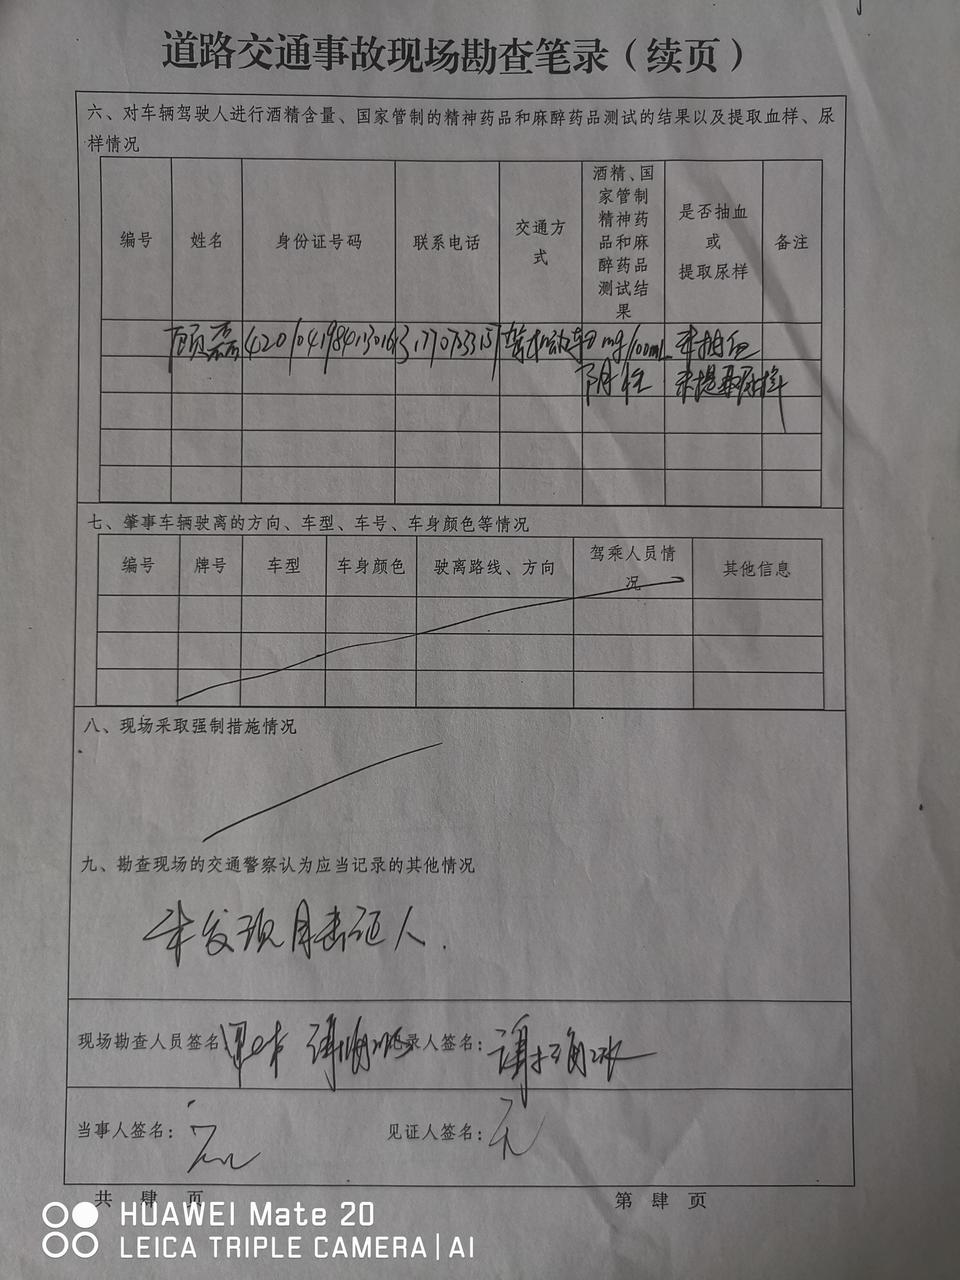 道路交通事故现场勘查笔录（续页）
六、对车辆驾驶人进行酒精含量、国家管制的精神药品和麻醉药品测试的结果以及提取血样、尿
样情况
编号 姓名 身份证号码 联系电话 交通方式 酒精、国家管制精神药品和麻醉药品测试结果 是否抽血或提取尿样 备注
顾磊 mg/100mL 未抽血
阴性 未提取尿样
七、肇事车辆驶离的方向、车型、车号、车身颜色等情况
编号 牌号 车型 车身颜色 驶离路线、方向 驾乘人员情况 其他信息
八、现场采取强制措施情况
九、勘查现场的交通警察认为应当记录的其他情况
未发现目击证人.
现场勘查人员签名 录人签名：
当事人签名： 见证人签名：无
共 肆 页 第 肆 页
HUAWEI Mate 20
LEICA TRIPLE CAMERA | AI